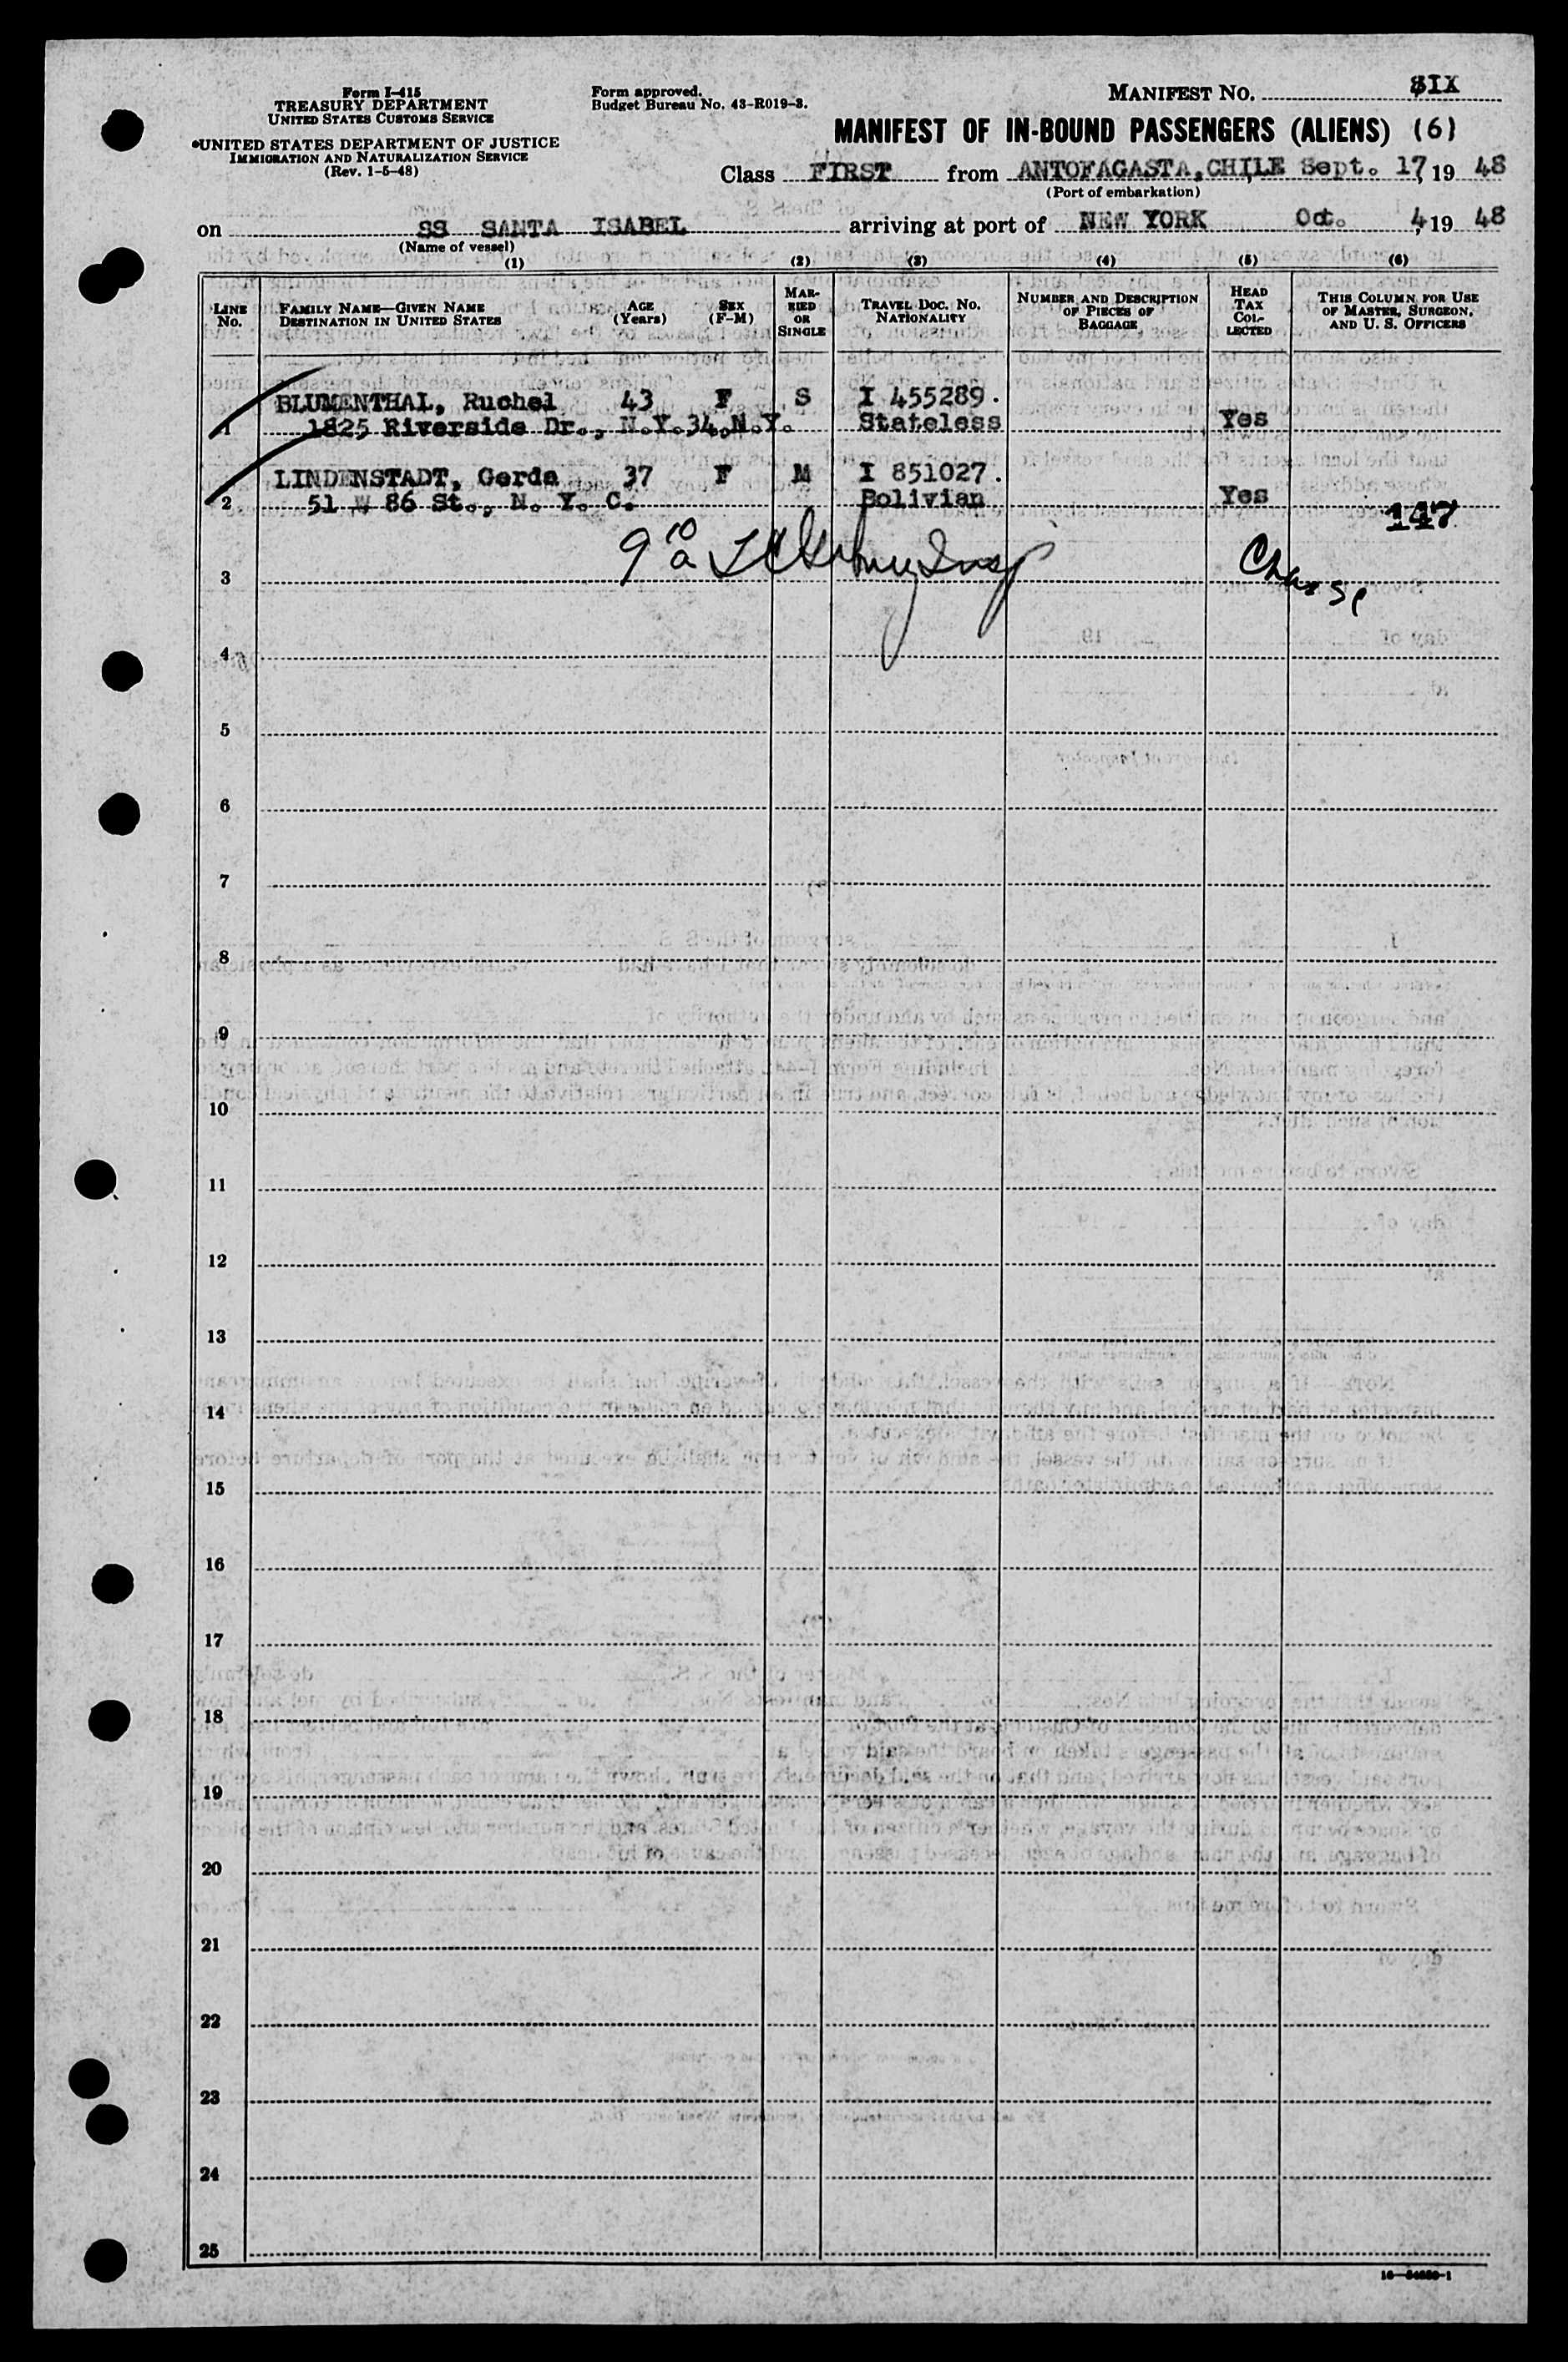 Form I-415
TREASURY DEPARTMENT
UNITED STATES CUSTOMS SERVICE
UNITED STATES DEPARTMENT OF JUSTICE
IMMIGRATION AND NATURALIZATION SERVICE
(Rev. 1-5-48)
Form approved.
Budget Bureau No. 43-R019-3.
MANIFEST NO. SIX
MANIFEST OF IN-BOUND PASSENGERS (ALIENS) (6)
Class FIRST from ANTOFAGASTA, CHILE Sept. 17, 19 48
(Port of embarkation)
on SS SANTA ISABEL arriving at port of NEW YORK Oct. 4, 19 48
(Name of vessel)
(1) (2) (3) (4) (5) (6)
LINE No. FAMILY NAME—GIVEN NAME DESTINATION IN UNITED STATES AGE (Years) SEX (F-M) MARRIED OR SINGLE TRAVEL DOC. NO. NATIONALITY NUMBER AND DESCRIPTION OF PIECES OF BAGGAGE HEAD TAX COLLECTED THIS COLUMN FOR USE OF MASTER, SURGEON, AND U. S. OFFICERS
BLUMENTHAL, Ruchel 43 F S I 455289.
1 1825 Riverside Dr., N.Y.34,N.Y. Stateless Yes
LINDENSTADT, Gerda 37 F M I 851027.
2 51 W 86 St., N. Y. C. Bolivian Yes
147
3
4
5
6
7
8
9
10
11
12
13
14
15
16
17
18
19
20
21
22
23
24
25